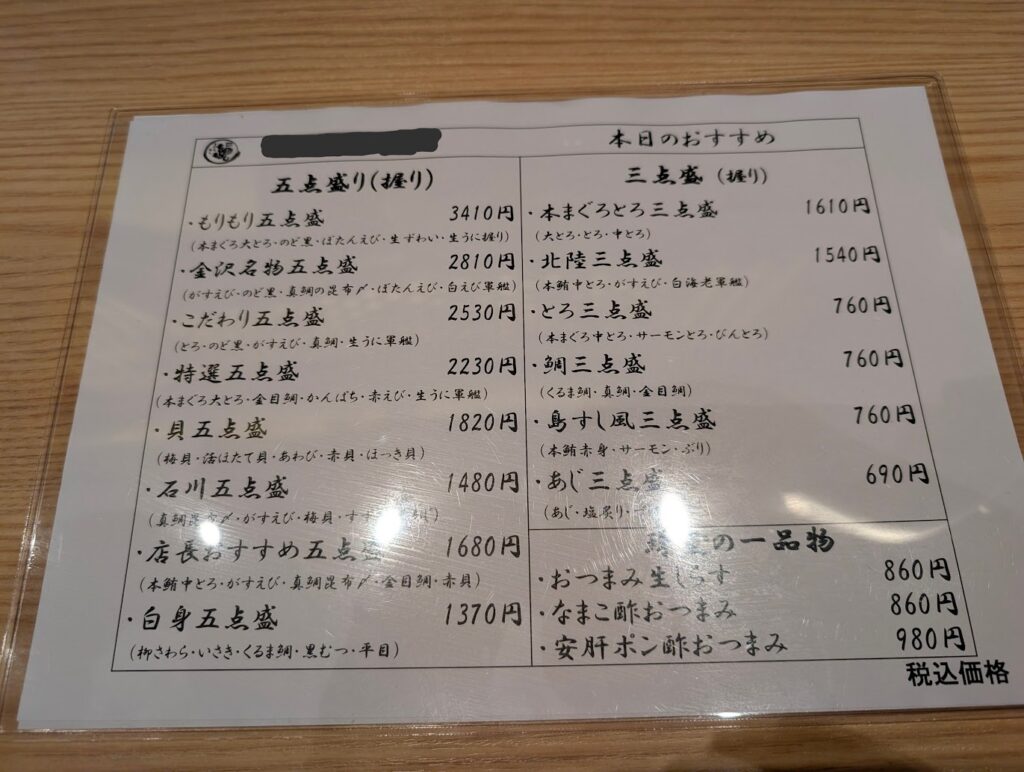 本日のおすすめ
五点盛り(握り)
・もりもり五点盛 3410円
(本まぐろ大とろ・のど黒・ぼたんえび・生ずわい・生うに握り)
・金沢名物五点盛 2810円
(がすえび・のど黒・真鯛の昆布〆・ぼたんえび・白えび軍艦)
・こだわり五点盛 2530円
(とろ・のど黒・がすえび・真鯛・生うに軍艦)
・特選五点盛 2230円
(本まぐろ大とろ・金目鯛・かんぱち・赤えび・生うに軍艦)
・貝五点盛 1820円
(梅貝・活ほたて貝・あわび・赤貝・ほっき貝)
・石川五点盛 1480円
(真鯛昆布〆・がすえび・梅貝・
・店長おすすめ五点盛 1680円
(本鮪中とろ・がすえび・真鯛昆布〆・金目鯛・赤貝)
・白身五点盛 1370円
(柳さわら・いさき・くるま鯛・黒むつ・平目)
三点盛(握り)
・本まぐろとろ三点盛 1610円
(大とろ・とろ・中とろ)
・北陸三点盛 1540円
(本鮪中とろ・がすえび・白海老軍艦)
・とろ三点盛 760円
(本まぐろ中とろ・サーモンとろ・びんとろ)
・鯛三点盛 760円
(くるま鯛・真鯛・金目鯛)
・島すし風三点盛 760円
(本鮪赤身・サーモン・ぶり)
・あじ三点盛 690円
(あじ・塩炙り・
の一品物
・おつまみ生しらす 860円
・なまこ酢おつまみ 860円
・安肝ポン酢おつまみ 980円
税込価格